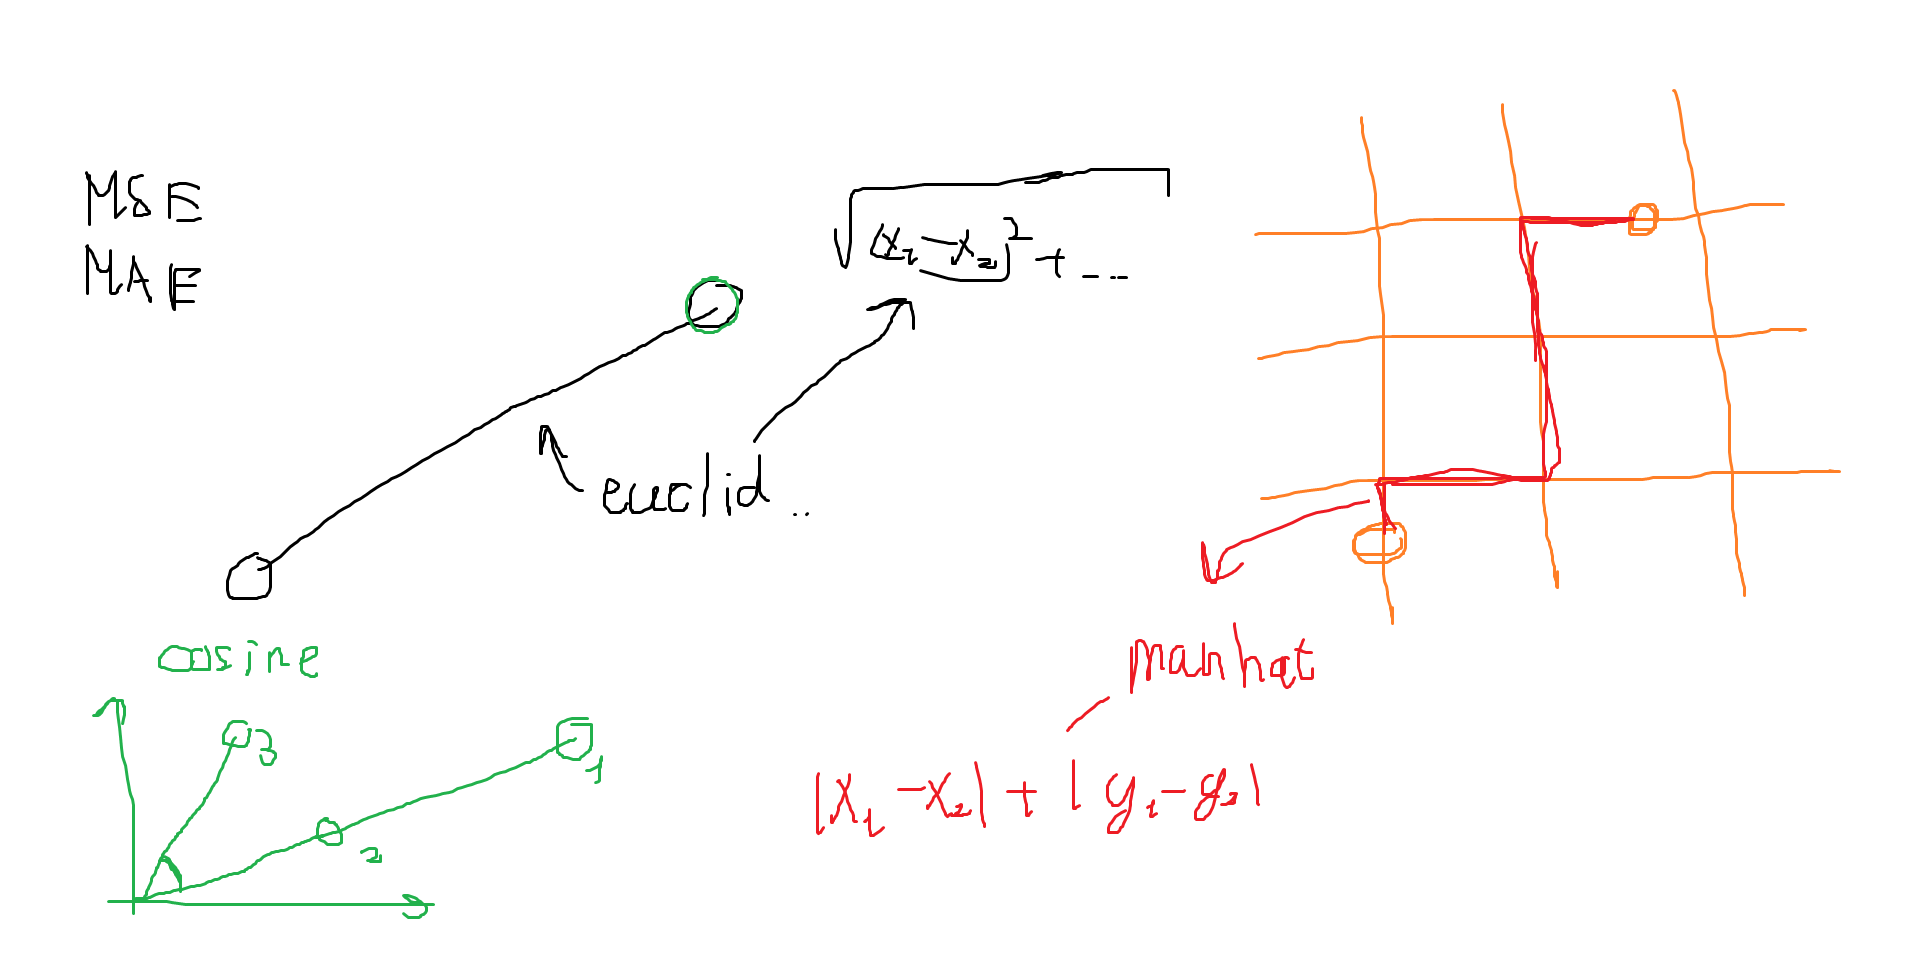 MSE
MAE
√(x₁-x₂)² + ...
euclid..
cosine
3
1
2
manhat
|x₁-x₂| + |y₁-y₂|